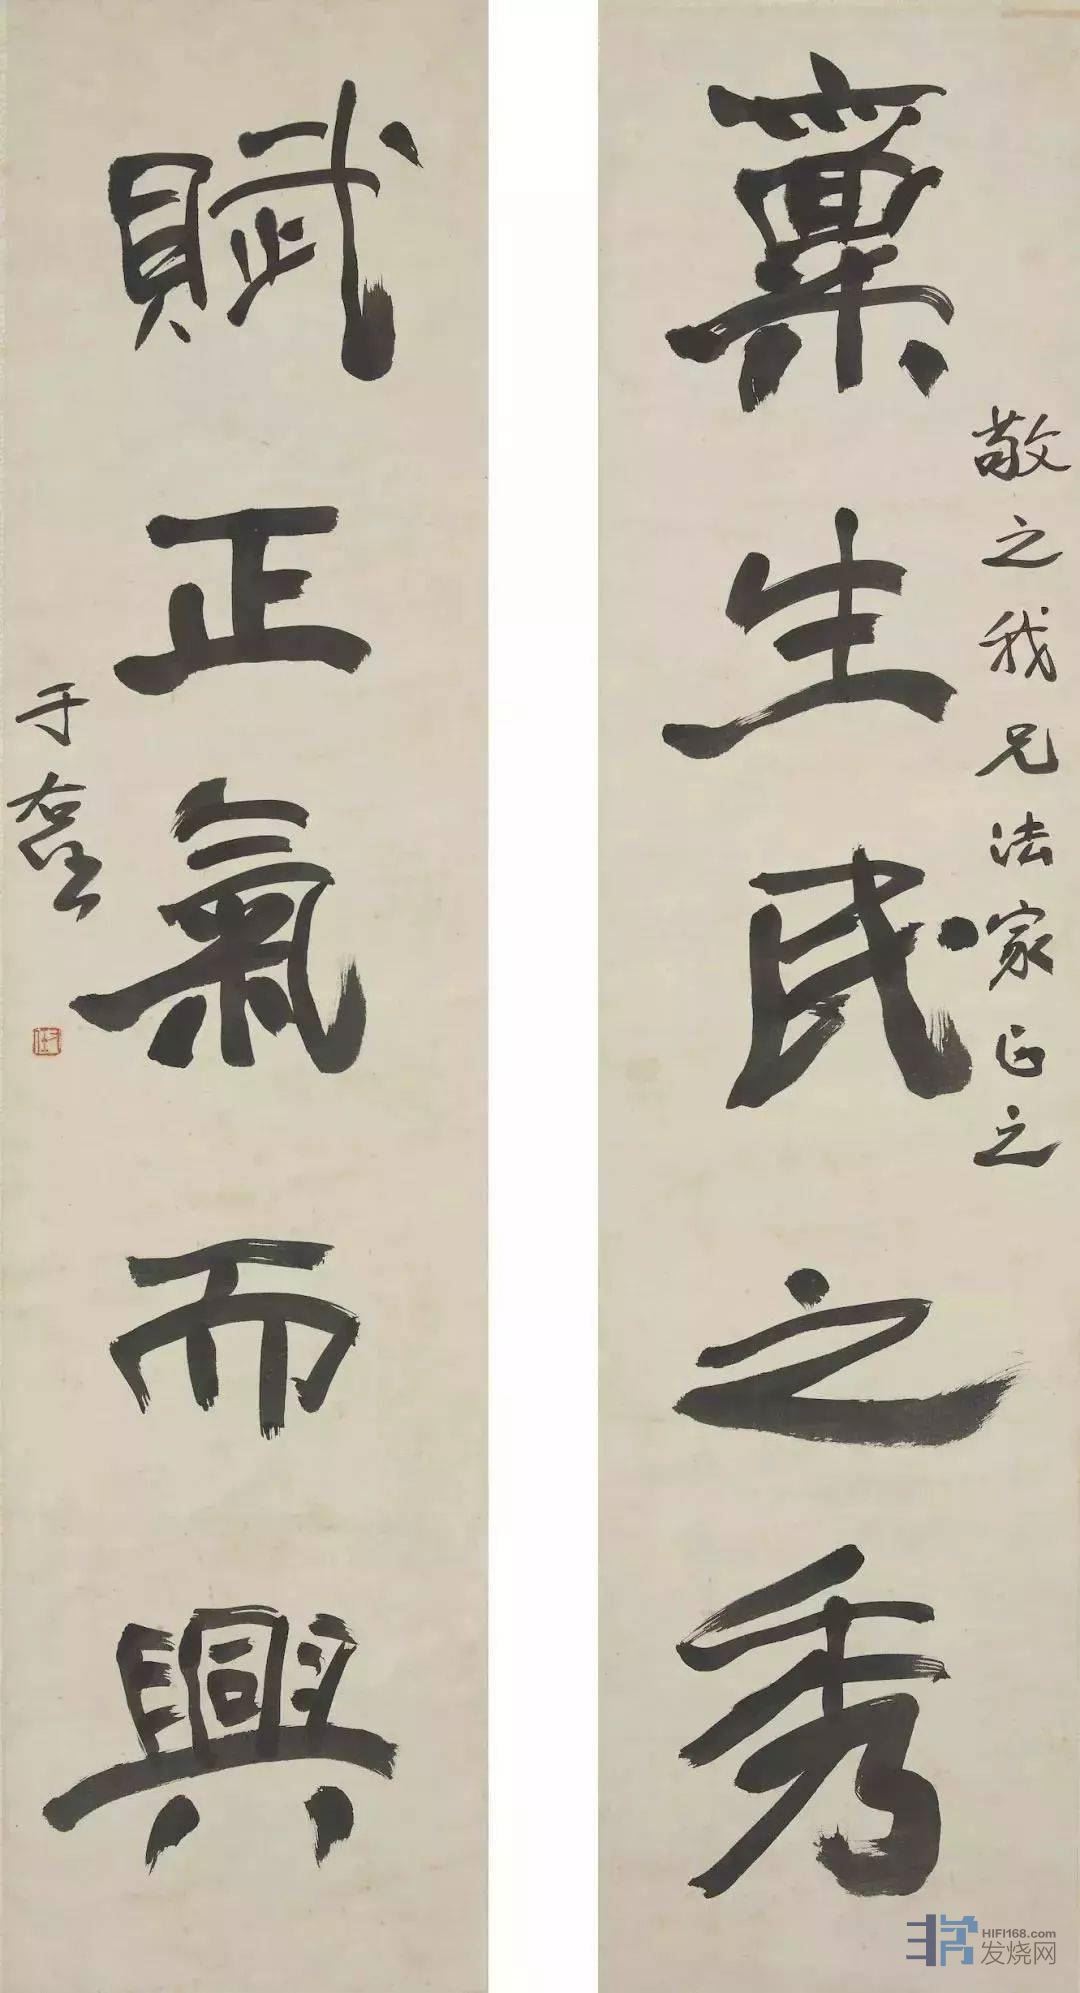 稟生民之秀
敬之我兄法家正之
賦正氣而興
于右任
右任
HIFI168.com
发烧网